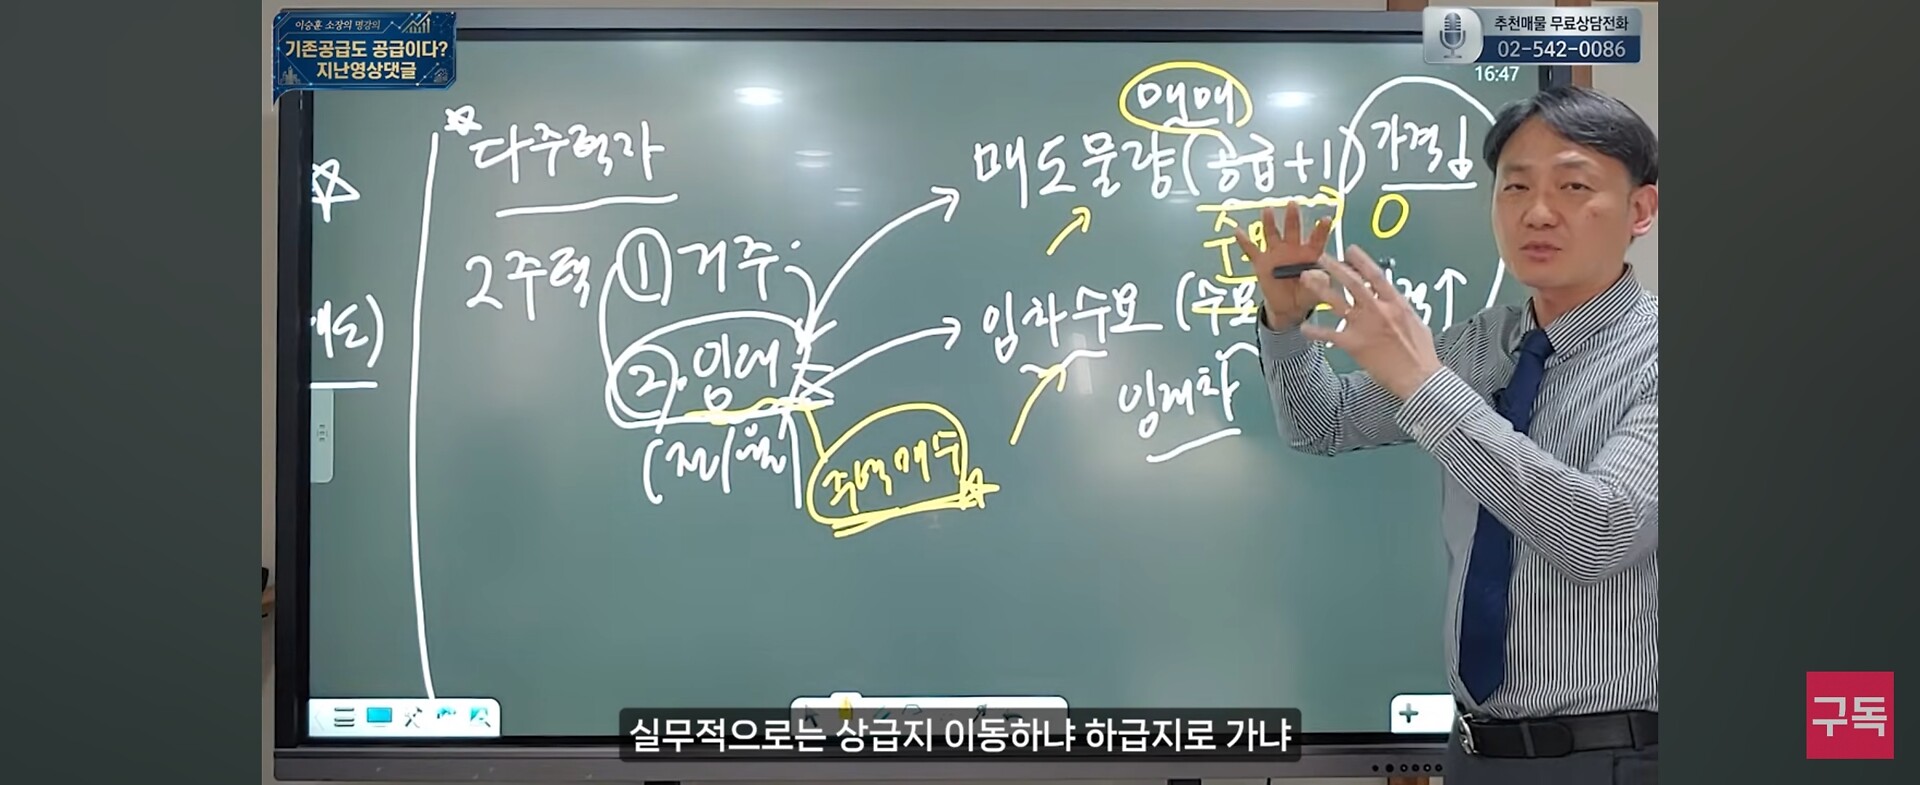 이승훈 소장의 명강의
기존공급도 공급이다?
지난영상댓글
추천매물 무료상담전화
02-542-0086
16:47
다주택자
2주택 ① 거주
② 임대
(전/월)
주택매수
매매
매도물량(공급+1)
가격
0
임차수요 (수요
↑
임대차
실무적으로는 상급지 이동하냐 하급지로 가냐
구독